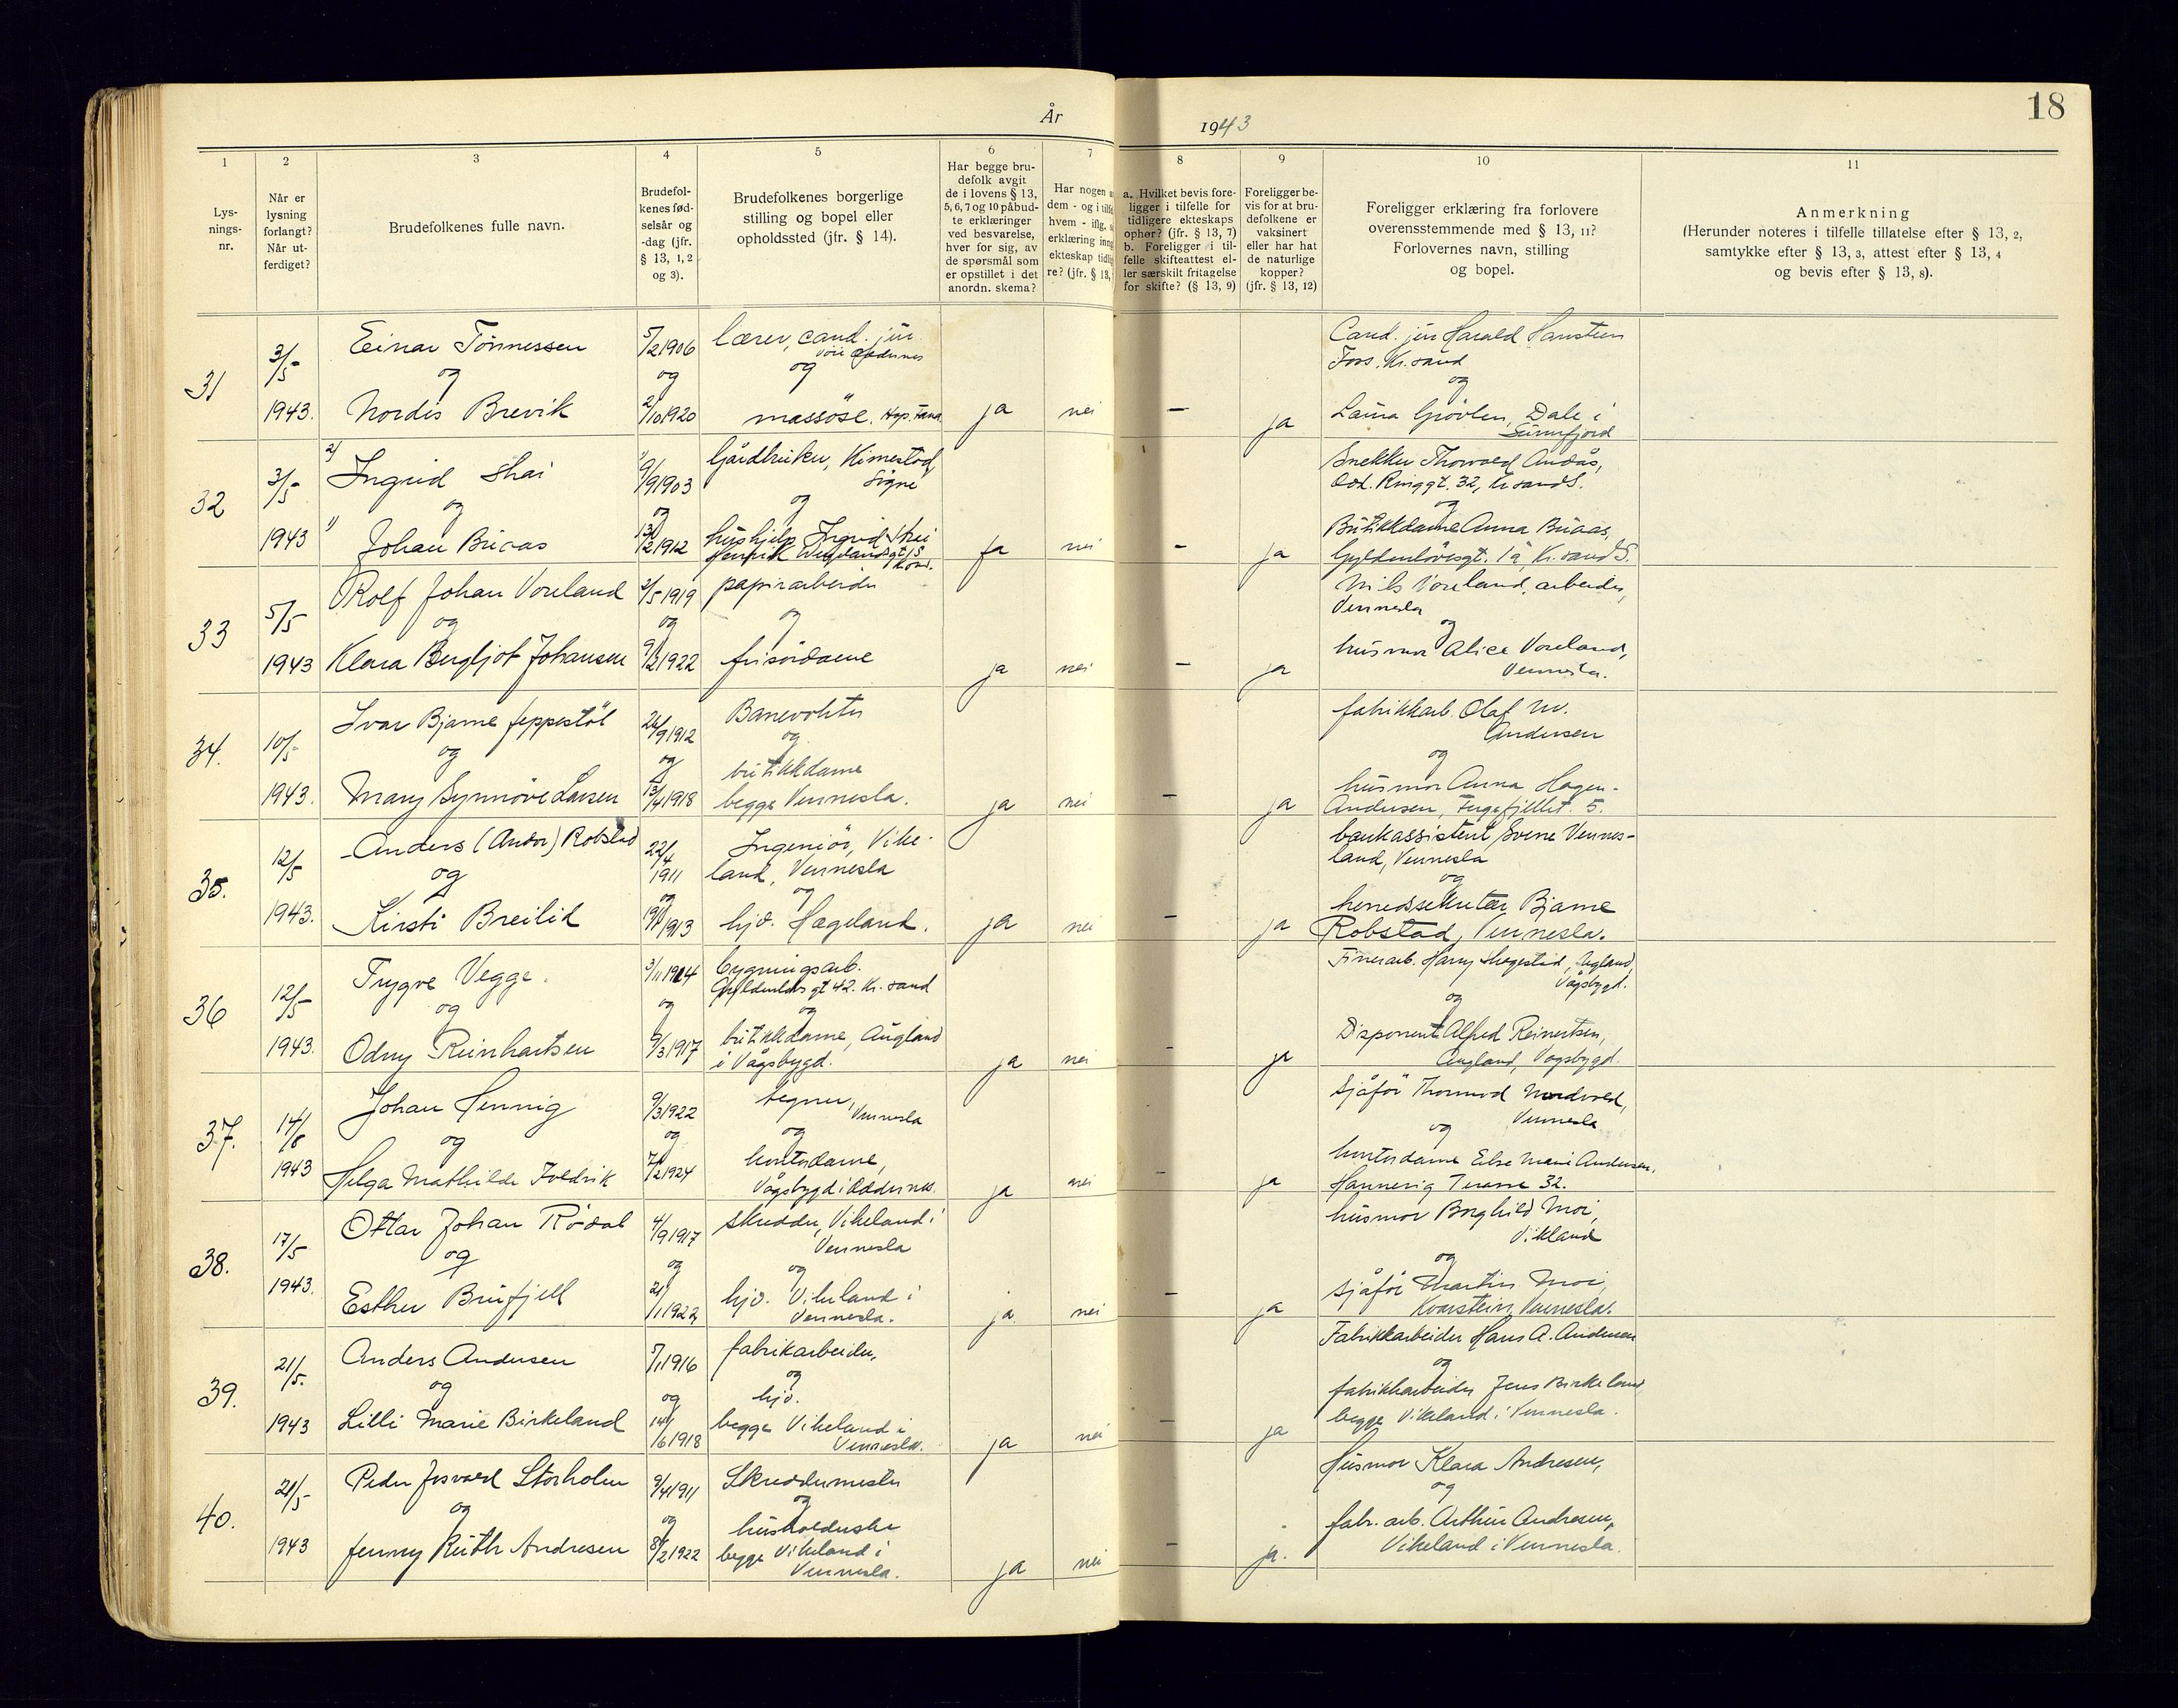 År 1943
18
1
Lys-
nings-
nr.
2
Når er
lysning
forlangt?
Når ut-
ferdiget?
3
Brudefolkenes fulle navn.
4
Brudefol-
kenes fød-
selsår og
-dag (jfr.
§ 13, 1, 2
og 3).
5
Brudefolkenes borgerlige
stilling og bopel eller
opholdssted (jfr. § 14).
6
Har begge bru-
defolk avgit
de i lovens § 13,
5, 6, 7 og 10 påbud-
te erklæringer
ved besvarelse,
hver for sig, av
de spørsmål som
er opstillet i det
anordn. skema?
7
Har nogen
dem - og i tilfe
hvem - iflg.
erklæring inng
ekteskap tidlig
re? (jfr. § 13,
8
a. Hvilket bevis fore-
ligger i tilfelle for
tidligere ekteskaps
ophør? (jfr. § 13, 7)
b. Foreligger i til-
felle skifteattest el-
ler særskilt fritagelse
for skifte? (§ 13, 9)
9
Foreligger be-
vis for at bru-
defolkene er
vaksinert
eller har hat
de naturlige
kopper?
(jfr. § 13, 12)
10
Foreligger erklæring fra forlovere
overensstemmende med § 13, 11?
Forlovernes navn, stilling
og bopel.
11
Anmerkning
(Herunder noteres i tilfelle tillatelse efter § 13, 2,
samtykke efter § 13, 3, attest efter § 13, 4
og bevis efter § 13, 8).
31
3/5
1943.
Einar Tönnessen
og
Nordis Brevik
5/2 1906
og
2/10 1920
lærer, cand. jur.
og
massöse. Hop. Fana
ja
nei
—
ja
Cand. jur Harald Hanstein
Foss. Kr. sand
og
Laura Grövlen, Dale i
Sunnfjord
32
3/5
1943
2) Ingrid Skei
og
1) Johan Buaas
9/9 1903
og
13/2 1912
Gårdbruker, Kimestad,
Sögne
og
hushjelp Ingrid Skei
Henrik Wergelandsgt
ja
nei
-
ja
Snekker Thorvald Andås,
Odd. Ringgt. 32, kr sand S.
og
Butikkdame Anna Buaas,
Gyldenlövesgt. 1a, Kr. sand S.
33
5/5
1943
Rolf Johan Voreland
og
Klara Bergljot Johansen
2/5 1919
og
9/2 1922
papirarbeider
og
frisördame
ja
nei
-
ja
Nils Voreland, arbeider,
Vennesla
og
husmor Alice Voreland,
Vennesla.
34.
10/5
1943.
Ivar Bjarne Jeppestöl
og
Mary Synnöve Larsen
24/9 1912
og
13/4 1918
Banevokter
og
butikkdame
begge Vennesla.
ja
nei
-
ja
fabrikkarb. Olaf M.
Andersen
og
husmor Anna Hagen-
Andersen, Fugefjellet. 5.
35.
12/5
1943.
Anders (Andor) Robstad
og
Kirsti Breilid
22/4
1911
og
1913
Ingeniör, Vike-
land, Vennesla
og
hjv. Hægeland.
ja
nei
-
ja
bankassistent Sverre Vennes-
land, Vennesla
og
herredssekretær Bjarne
Robstad, Vennesla.
36
12/5
1943.
Trygve Vegge.
og
Odny Reinhartsen
3/11 1914
og
9/3 1917
bygningsarb.
Gyldenlövs gt 42. Kr. sand
og
butikkdame, Augland
i Vågsbygd.
ja
nei
-
ja
Finerarb. Harry Skogestad, Augland,
Vågsbygd.
og
Disponent Alfred Reinertsen,
Augland, Vågsbygd.
37.
14/5
1943
Johan Hennig
og
Helga Mathilde Foldvik
9/3 1922
og
7/2 1924
tegner,
Vennesla
og
kontordame,
Vågsbygd i Oddernes.
ja
nei
-
ja
Sjåför Thormod Nordvold,
Vennesla
og
kontordame Else Marie Andersen,
Hannevig Terrasse 32.
38.
17/5
1943.
Ottar Johan Rödal
og
Esther Brufjell
4/9 1917
og
21/1 1922
skredder, Vikeland i
Vennesla
og
hjv. Vikeland i
Vennesla.
ja
nei
-
ja
husmor Borghild Moi,
Vikland
og
sjåför Martin Moi,
Kvarstein, Vennesla.
39.
21/5.
1943
Anders Andersen
og
Lilli Marie Birkeland
5/1 1916
og
14/6 1918
fabrikarbeider,
og
hjv.
begge Vikeland i
Vennesla.
ja
nei
-
ja
Fabrikkarbeider Hans A. Andersen
og
fabrikkarbeider Jens Birkeland
begge Vikeland i Vennesla.
40.
21/5
1943
Peder Josvard Storholm
og
Jenny Ruth Andresen
9/4 1911
og
8/2 1922
Skreddermester
og
husholderske
begge Vikeland i
Vennesla.
ja
nei
-
ja.
Husmor Klara Andresen,
og
fabr. arb. Arthur Andresen,
Vikeland i Vennesla.